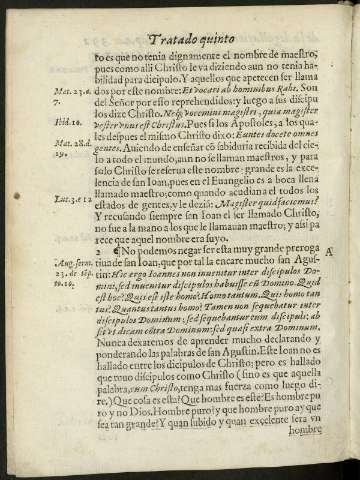 Tratado quinto
to es que no tenia dignamente el nombre de maestro;
pues como alli Christo le va diziendo aun no tenia ha-
bilidad para dicipulo. Y aquellos que apetecen ser llama
Mat. 23. a. 7.
dos por este nombre: Et vocari ab hominibus Rabi. Son
del Señor por esso reprehendidos: y luego a sus discipu
Ibid. 10.
los dize Christo. Neq; vocemini magistri, quia magister
vester vnus est Christus. Pues si los Apostoles, a los qua-
Mat. 28. d. 19.
les despues el mismo Christo dixo: Euntes docete omnes
gentes. Auiendo de enseñar cō sabiduria recibida del cie-
lo a todo el mundo, aun no se llaman maestros, y para
solo Christo se reserua este nombre: grande es la exce-
lencia de san Iuan, pues en el Euangelio es a boca llena
Luc. 3. c 12
llamado maestro; como quando acudian a el todos los
estados de gentes, y le dezia: Magister quid faciemus?
Y recusando siempre san Ioan el ser llamado Christo,
no fue a la mano a los que le llamauan maestro; y assi pa
rece que aquel nombre era suyo.
2 ¶ No podemos negar ser esta muy grande preroga A
Aug. serm. 23. de sāp. to. 10.
tiua de san Ioan, que por tal la encare mucho san Agus-
tin: Hic ergo Ioannes non inuenitur inter discipulos Do-
mini, sed inuenitur discipulos habuisse cū Domino. Quid
est hoc? Quis est iste homo? Homo tantum. Quis homo tan
tus? Quantus tantus homo? Tamen non sequebatur inter
discipulos Dominum, sed sequebantur eum discipuli; ab
sit vt dicam cōtra Dominum: sed quasi extra Dominum.
Nunca dexaremos de aprender mucho declarando y
ponderando las palabras de san Agustin. Este Ioan no es
hallado entre los dicipulos de Christo: pero es hallado
que tuuo dicipulos como Christo (sino es que aquella
palabra, cum Christo, tenga mas fuerza como luego di-
re.) Que cosa es esta? Que hombre es este? Es hombre pu
ro y no Dios. Hombre puro? y que hombre puro ay que
sea tan grande? Y quan subido y quan excelente sera vn
hombre